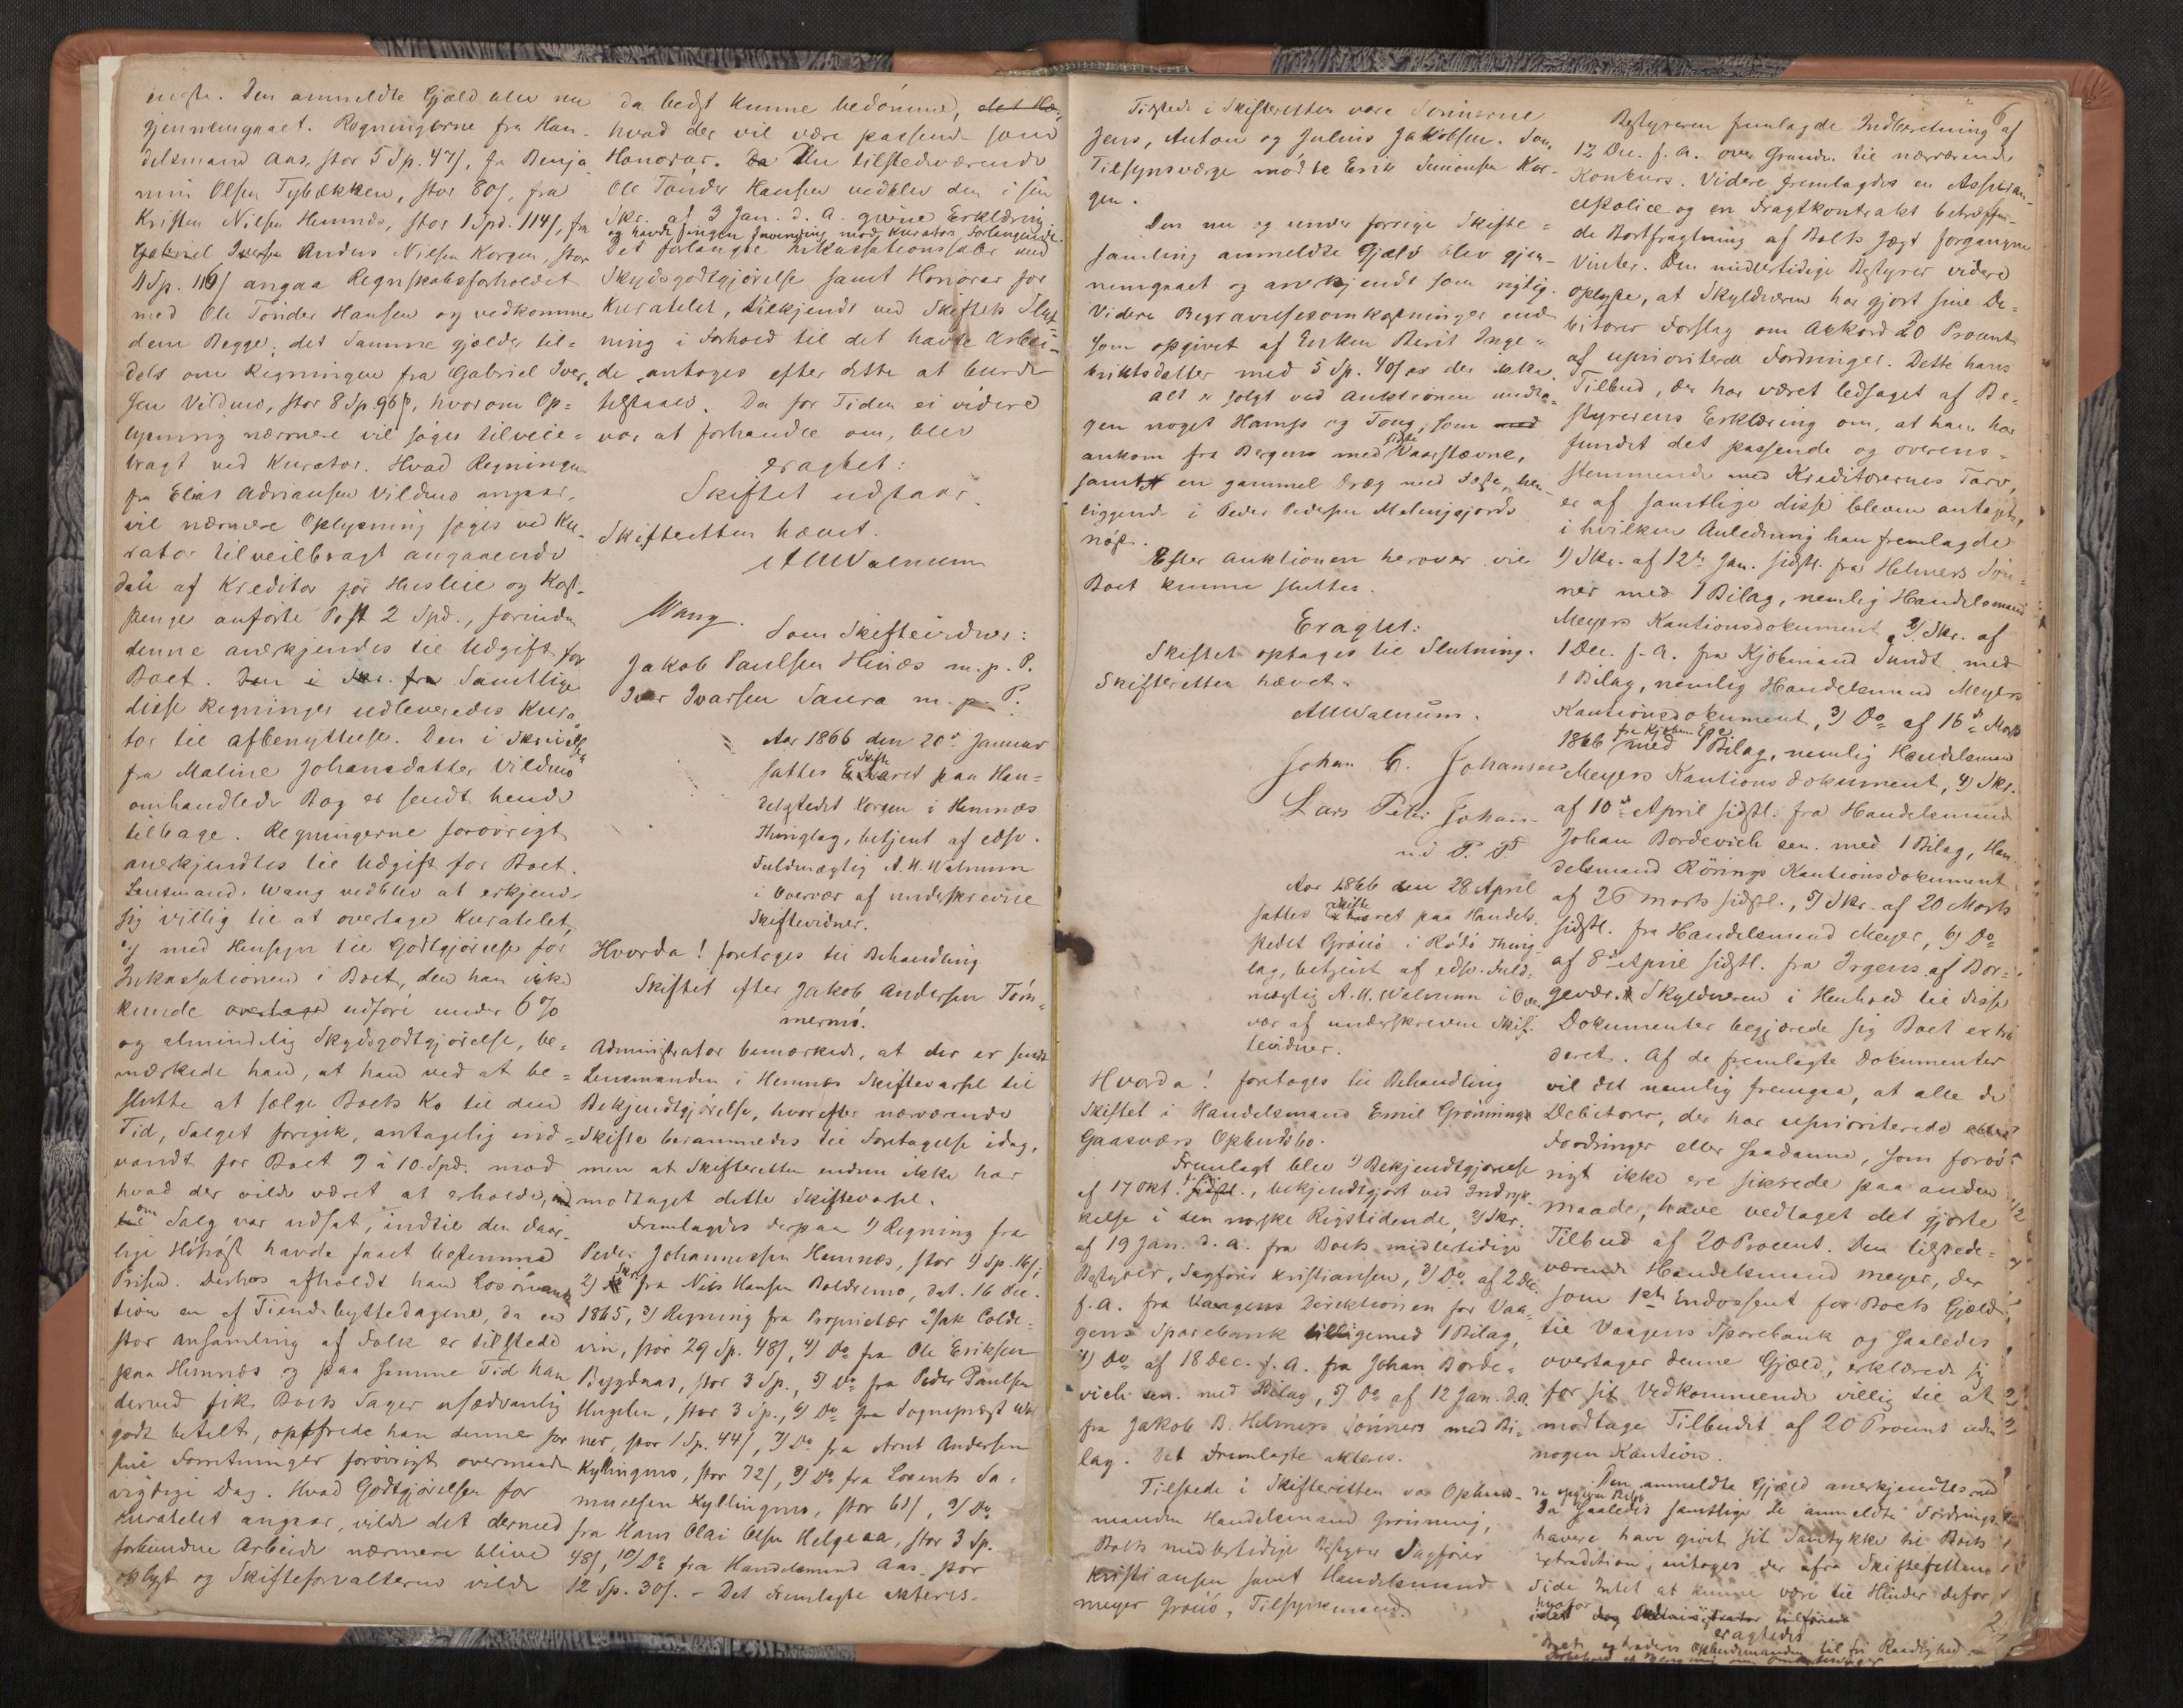 Den anmeldte Gjæld blev nu
gjennemgaaet. Regningerne fra Han-
delsmand Aas, stor 5 Sp. 47 s, fra Benja-
min Olsen Tybækken, stor 80 s, fra
Kristen Nilsen Hemnæs, stor 1 Spd. 114 s, fra
Gabriel Iversen Anders Nilsen Korgen, stor
11 Sp. 116 s angaa Regnskabsforholdet
med Ole Tønder Hansen og vedkomme
dem Begge; det Samme gjælder til=
dels om Regningen fra Gabriel Iver-
sen Vildmo, stor 8 Sp. 96 s, hvorom Op=
lysning nærmere vil søges tilveie=
bragt ved Kurator. Hvad Regningen
fra Elias Adriansen Vildmo angaar,
vil nærmere Oplysning søges ved Ku-
rator tilveiebragt angaaende
den af Kreditor for Husleie og Kost-
penge anførte Post 2 Spd., forinden
denne anerkjendes til Udgift for
Boet. Den i Skr. fra Samtlige
disse Regninger udleveredes Kura-
tor til afbenyttelse. Den i Skrivelse
fra Maline Johansdatter Vildmo
omhandlede Bog er sendt hende
tilbage. Regningerne forøvrigt
anerkjendtes til Udgift for Boet.
Lensmand Wang vedblev at erkjende
sig villig til at overtage Kuratelet,
og med Hensyn til Godtgjørelse for
Inkassationen i Boet, den han ikke
kunde overtage udføre under 6 %
og almindelig Skydsgodtgjørelse, be=
mærkede han, at han ved at be=
slutte at sælge Boets Ko til den
Tid, Salget foregik, antagelig ind=
vandt for Boet 9 à 10 Spd. mod
hvad der vilde været at erholde, ind
om Salg var udsat, indtil den daar-
lige Høhøst havde faaet bestemme
Prisen. Derhos afholdt han Løsøreauk
tion en af Tiendebyttedagene, da en
stor Ansamling af Folk er tilstede
paa Hemnæs og paa samme Tid han
derved fik Boets Sager usædvanlig
godt betalt, opofrede han denne for
sine Forretninger forøvrigt overmaade
vigtige Dag. Hvad Godtgjørelsen for
Kuratelet angaar, vilde det dermed
forbundne Arbeide nærmere blive
oplyst og Skifteforvalteren vilde
da bedst kunne bedømme,
hvad der vil være passende som
Honorar. Da Den tilstedeværende
Ole Tønder Hansen vedblev den i sin
Skr. af 3 Jan. d. A. givne Erklæring
og havde Ingen Indvending mod Kurators Forlangende.
Det forlangte Inkassationssalær med
Skydsgodtgjørelse samt Honorar for
Kuratelet, tilkjendt ved Skiftets Slut-
ning i Forhold til det havte Arbei-
de, antoges efter dette at burde
tilstaaes. Da for Tiden ei videre
var at forhandle om, blev
eragtet:
Skiftet udstaar.
Skifteretten hævet.
A M Walnum
Wang.
Som Skiftevidner:
Jakob Paulsen Hinæs m. p. P.
Iver Ivarsen Saura m. p. P.
Aar 1866 den 20de Januar
sattes Skifteret paa Han=
delsstedet Korgen i Hemnæs
Thinglag, betjent af edsv.
Fuldmægtig A. M. Walnum
i Overvær af underskrevne
Skiftevidner.
Hvorda! foretoges til Behandling
Skiftet efter Jakob Andersen Tøm-
mermo.
Administrator bemærkede, at der er sendt
Lensmanden i Hemnæs Skiftevarsel til
Bekjendtgjørelse, hvorefter nærværende
Skifte berammedes til Foretagelse idag,
men at Skifteretten endnu ikke har
modtaget dette Skiftevarsel.
Fremlagdes derpaa 1) Regning fra
Peder Johannessen Hemnæs, stor 1 Sp. 16 s;
2) Skr. fra Nils Hansen Boldremo, dat. 16 Dec.
1865, 3) Regning fra Proprietær Isak Colde-
vin, stor 29 Sp. 48 s, 4) Do fra Ole Eriksen
Bygdnæs, stor 3 Sp., 5) Do fra Peder Paulsen
Ungelen, stor 3 Sp., 6) Do fra Sogneprest
ner, stor 1 Sp. 44 s, 7) Do fra Arnt Andersen
Kyllingmo, stor 72 s, 8) Do fra Lorents Sa-
muelsen Kyllingmo, stor 60 s, 9) Do
fra Hans Olai Olsen Helgeaa, stor 3 Sp.
48 s, 10) Do fra Handelsmand Aas, stor
12 Sp. 30 s. - Det Fremlagte akteres.
Tilstede i Skifteretten vare Sønnerne
Jens, Anton og Julius Jakobsen. Som
Tilsynsværge mødte Erik Simonsen Kor-
gen.
Den nu og under forrige Skifte=
samling anmeldte Gjæld blev gjen-
nemgaaet og anerkjendt som rigtig.
Videre Begravelsesomkostninger end
som opgivet af Enken Berit Inge-
briktsdatter med 5 Sp. 40 s er der ikke.
Alt er solgt ved Auktionen undta-
gen noget Hamp og Toug, som med
ankom fra Bergen med sidste Vaarstævne,
samt en gammel Dræg med Tøste, hen-
liggende i Peder Pedersen Melingsjords
nøst.
Efter Auktionen herover vil
Boet kunne sluttes.
Eragtet:
Skiftet optages til Slutning.
Skifteretten hævet.
A M Walnum.
Johan C. Johansen
Lars Peter Johan-
m. P. P.
Aar 1866 den 28 April
sattes Skifteret paa Handels-
stedet Grønø i Rødø Thing
lag, betjent af edsv. Fuld-
mægtig A. M. Walnum i Over
vær af underskrevne Skif-
tevidner.
Hvorda! foretoges til Behandling
Skiftet i Handelsmand Emil Grønnings
Gaasværs Opbudsbo.
Fremlagt blev 1) Bekjendtgjørelse
af 17 Okt. f. A., bekjendtgjort ved Indryk-
kelse i den norske Rigstidende, 2) Skr.
af 19 Jan. d. A. fra Boets midlertidige
Bestyrer, Sagfører Kristiansen, 3) Do. af 2 Dec.
f. A. fra Vaagens Direktionen for Vaa-
gens Sparebank tilligemed 1 Bilag,
4) Do af 18 Dec. f. A. fra Johan Borde-
vich sen. med Bilag, 5) Do af 12 Jan. d. A.
fra Jakob B. Helmers Sønner med Bi-
lag. Det Fremlagte akteres.
Tilstede i Skifteretten var Opbuds-
manden Handelsmand Grønning,
Boets midlertidige Bestyrer Sagfører
Kristiansen samt Handelsmand
Meyer Grønø, Tilsynsmand.
6
Bestyreren fremlagde Indberetning af
12 Dec. f. A. over Grunden til nærværende
Konkurs. Videre fremlagdes en Assuran-
cepolice og en Fragtkontrakt betræffen-
de Bortfragtning af Boets Jægt forgangne
Vinter. Den midlertidige Bestyrer videre
oplyste, at Skyldneren har gjort sine De-
bitorer Forslag om Akkord 20 Procent
af uprioriterede Fordringer. Dette hans
Tilbud, der har været ledsaget af Be-
styrerens Erklæring om, at han har
fundet det passende og overens-
stemmende med Kreditorernes Tarv,
er af samtlige disse bleven antaget,
i hvilken Anledning han fremlagde
1) Skr. af 12te Jan. sidstl. fra Helmers Søn-
ner med 1 Bilag, nemlig Handelsmand
Meyers Kautionsdokument, 2) Skr. af
1 Dec. f. A. fra Kjøbmand Sundt med
1 Bilag, nemlig Handelsmand Meyers
Kautionsdokument, 3) Do af 16de Marts
1866 med 1 Bilag, nemlig Handelsmand
Meyers Kautionsdokument, 4) Skr.
af 10de April sidstl. fra Handelsmand
Johan Bordevich sen. med 1 Bilag, Han-
delsmand Rørings Kautionsdokument
af 26 Marts sidstl., 5) Skr. af 20 Marts
sidstl. fra Handelsmand Meyer, 6) Do
af 8de April sidstl. fra Irgens af Bor-
gevær. Skyldneren i Henhold til disse
Dokumenter begjærede sig Boet extra
deret. Af de fremlagte Dokumenter
vil det nemlig fremgaa, at alle de
Debitorer, der har uprioriterede
Fordringer eller saadanne, som forøv-
rigt ikke ere sikrede paa anden
Maade, have vedtaget det gjorte
Tilbud af 20 Procent. Den tilstede-
værende Handelsmand Meyer, der
som 1ste Endossent for Boets Gjæld
til Vaagens Sparebank og saaledes
overtager denne Gjæld, erklærede sig
for sit Vedkommende villig til at
modtage Tilbudet af 20 Procent uden
nogen Kaution.
Den anmeldte Gjæld anerkjendtes med
de opgivne Beløb
Da saaledes samtlige de anmeldte Fordrings-
havere have givet sit Samtykke til Boets
Extradition, antoges der ifra Skifterettens
Side Intet at kunne være til Hinder derfor,
hvorfor
idet dog Administrator tilføiede
eragtedes
Boets extraderes Opbudsmanden til fri Raadighed